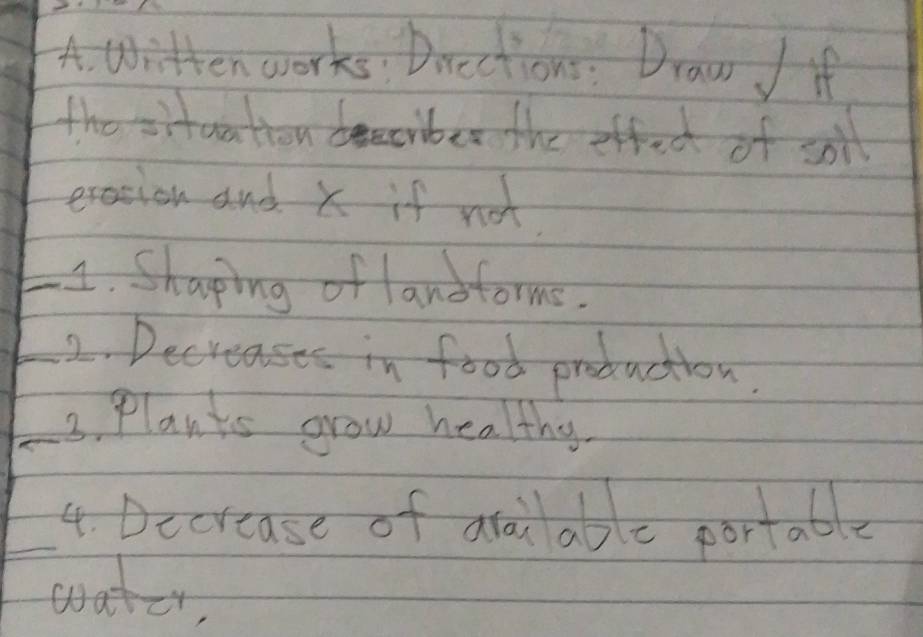 A. Written works: Directions: Draw √ if
the situation describes the effect of soil
erosion and x if not.
1. Shaping of landforms.
2. Decreases in food production.
3. Plants grow healthy.
4. Decrease of available portable
water.